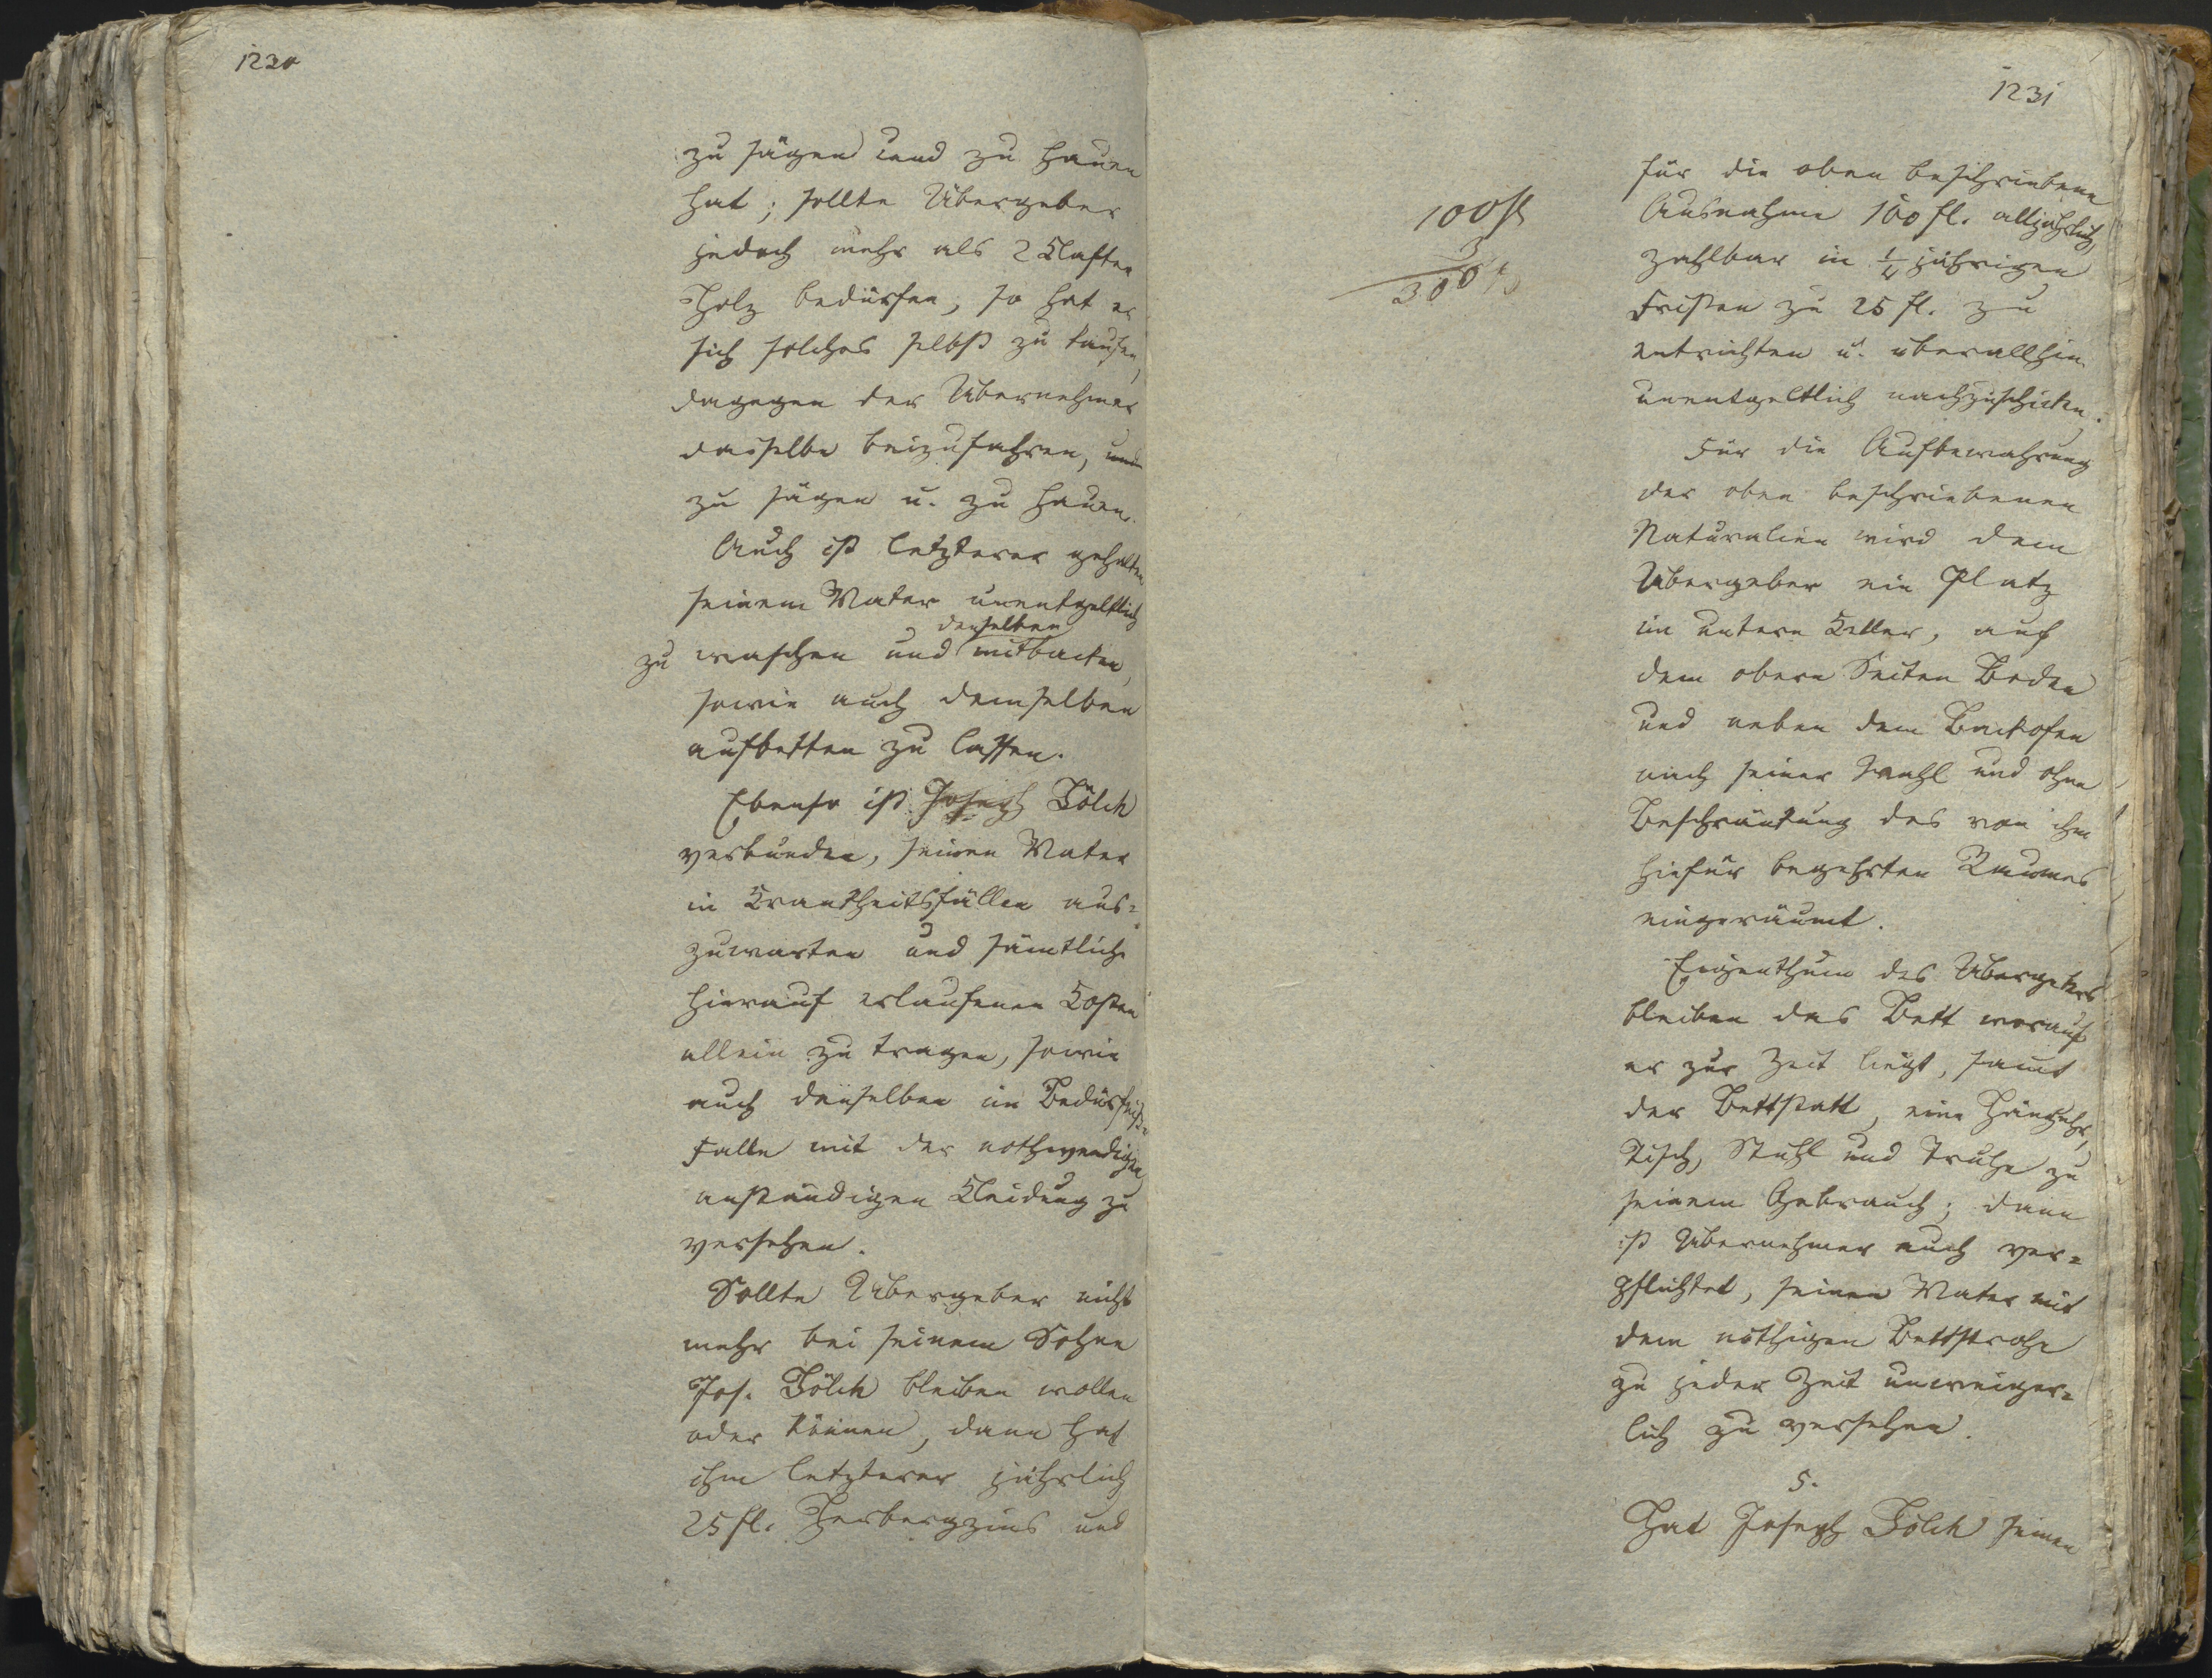 1230
zu sägen und zu hauen
hat; sollte Übergeber
jedoch mehr als 2 Klafter
Holz bedürfen, so hat er
sich solches selbst zu kaufen,
dagegen der Übernehmer
dasselbe beizufahren,
zu sägen u. zu hauen.
Auch ist letzterer gehalten
seinem Vater unentgeltlich
denselben
zu waschen und mitbacken,
sowie auch demselben
aufbetten zu lassen.
Ebenso ist Joseph Fölck
verbunden, seinen Vater
in Krankheitsfällen aus=
zuwarten und sämtliche
hierauf erlaufenen Kosten
allein zu tragen, sowie
auch denselben im Bedürfniß=
Falle mit der nothwendigen
anständigen Kleidung zu
versehen.
Sollte Übergeber nicht
mehr bei seinem Sohne
Jos. Fölck bleiben wollen
oder können, dann hat
ihm letzterer jährlich
25 fl. Herbergzins und
1231
100 fl
3
300 fl
für die oben beschriebene
Ausnahme 100 fl. alljährlich,
zahlbar in ¼ jährigen
Fristen zu 25 fl. zu
entrichten u. überallhin
unentgeltlich nachzuschicken.
Für die Aufbewahrung
der oben beschriebenen
Naturalien wird dem
Übergeber ein Platz
im untern Keller, auf
dem obern Seiten Boden
und neben dem Backofen
nach seiner Wahl und ohne
Beschränkung des von ihm
hiefür begehrten Raumes
eingeräumt.
Eigenthum des Übergebers
bleiben das Bett worauf
er zur Zeit liegt, samt
der Bettstatt, eine Hänguhr,
Tisch, Stuhl und Truhe zu
seinem Gebrauch; dann
ist Übernehmer auch ver=
pflichtet, seinen Vater mit
dem nöthigen Bettstrohe
zu jeder Zeit unweiger=
lich zu versehen.
5.
Hat Joseph Fölck seinen